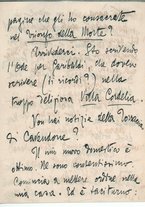 pagine che gli ho consacrate
nel Trionfo della Morte?
Arrivederci. Sto scrivendo
l'Ode per Garibaldi, che dovrei
scrivere (ti ricordi?) nella
troppo religiosa Volta Cordelia.
Voi hai notizie della
& Cadendone?
Il mio nuovo domestico è
ottimo. Ne sono contentissimo
Comincia a mettere ordine nella
mia casa. Ed è taciturno: